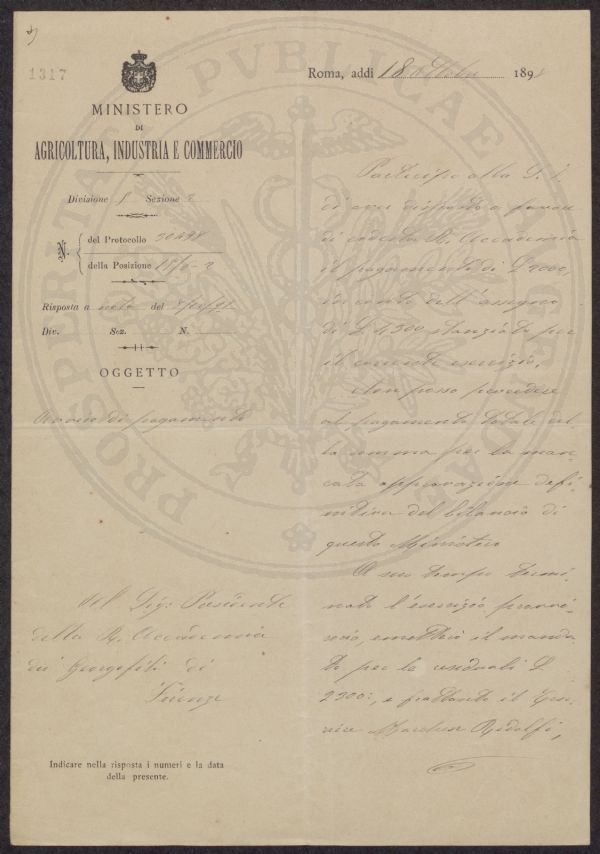 1317
MINISTERO
DI
AGRICOLTURA, INDUSTRIA E COMMERCIO
Divisione I Sezione 2
N. del Protocollo 30498
della Posizione
Risposta a nota del
Div. Sez. N.
OGGETTO
Avviso di pagamento
Al Sig. Presidente
della R. Accademia
dei Georgofili di
Firenze
Indicare nella risposta i numeri e la data
della presente.
Roma, addì 18 Ottobre 189
Partecipo alla S. V.
di aver disposto a favore
di codesta R. Accademia
il pagamento di L 2000,
in conto dell'assegno
di L. 4500 stanziato per
il corrente esercizio.
Non posso provvedere
al pagamento totale del-
la somma per la man-
cata approvazione defi-
nitiva del bilancio di
questo Ministero
A suo tempo termi-
nato l'esercizio provvi-
sorio, emetterò il manda-
to per le residuali L.
2500:, e frattanto il
Marchese Ridolfi,
PROSPERITATI PVBLICAE AVGENDAE